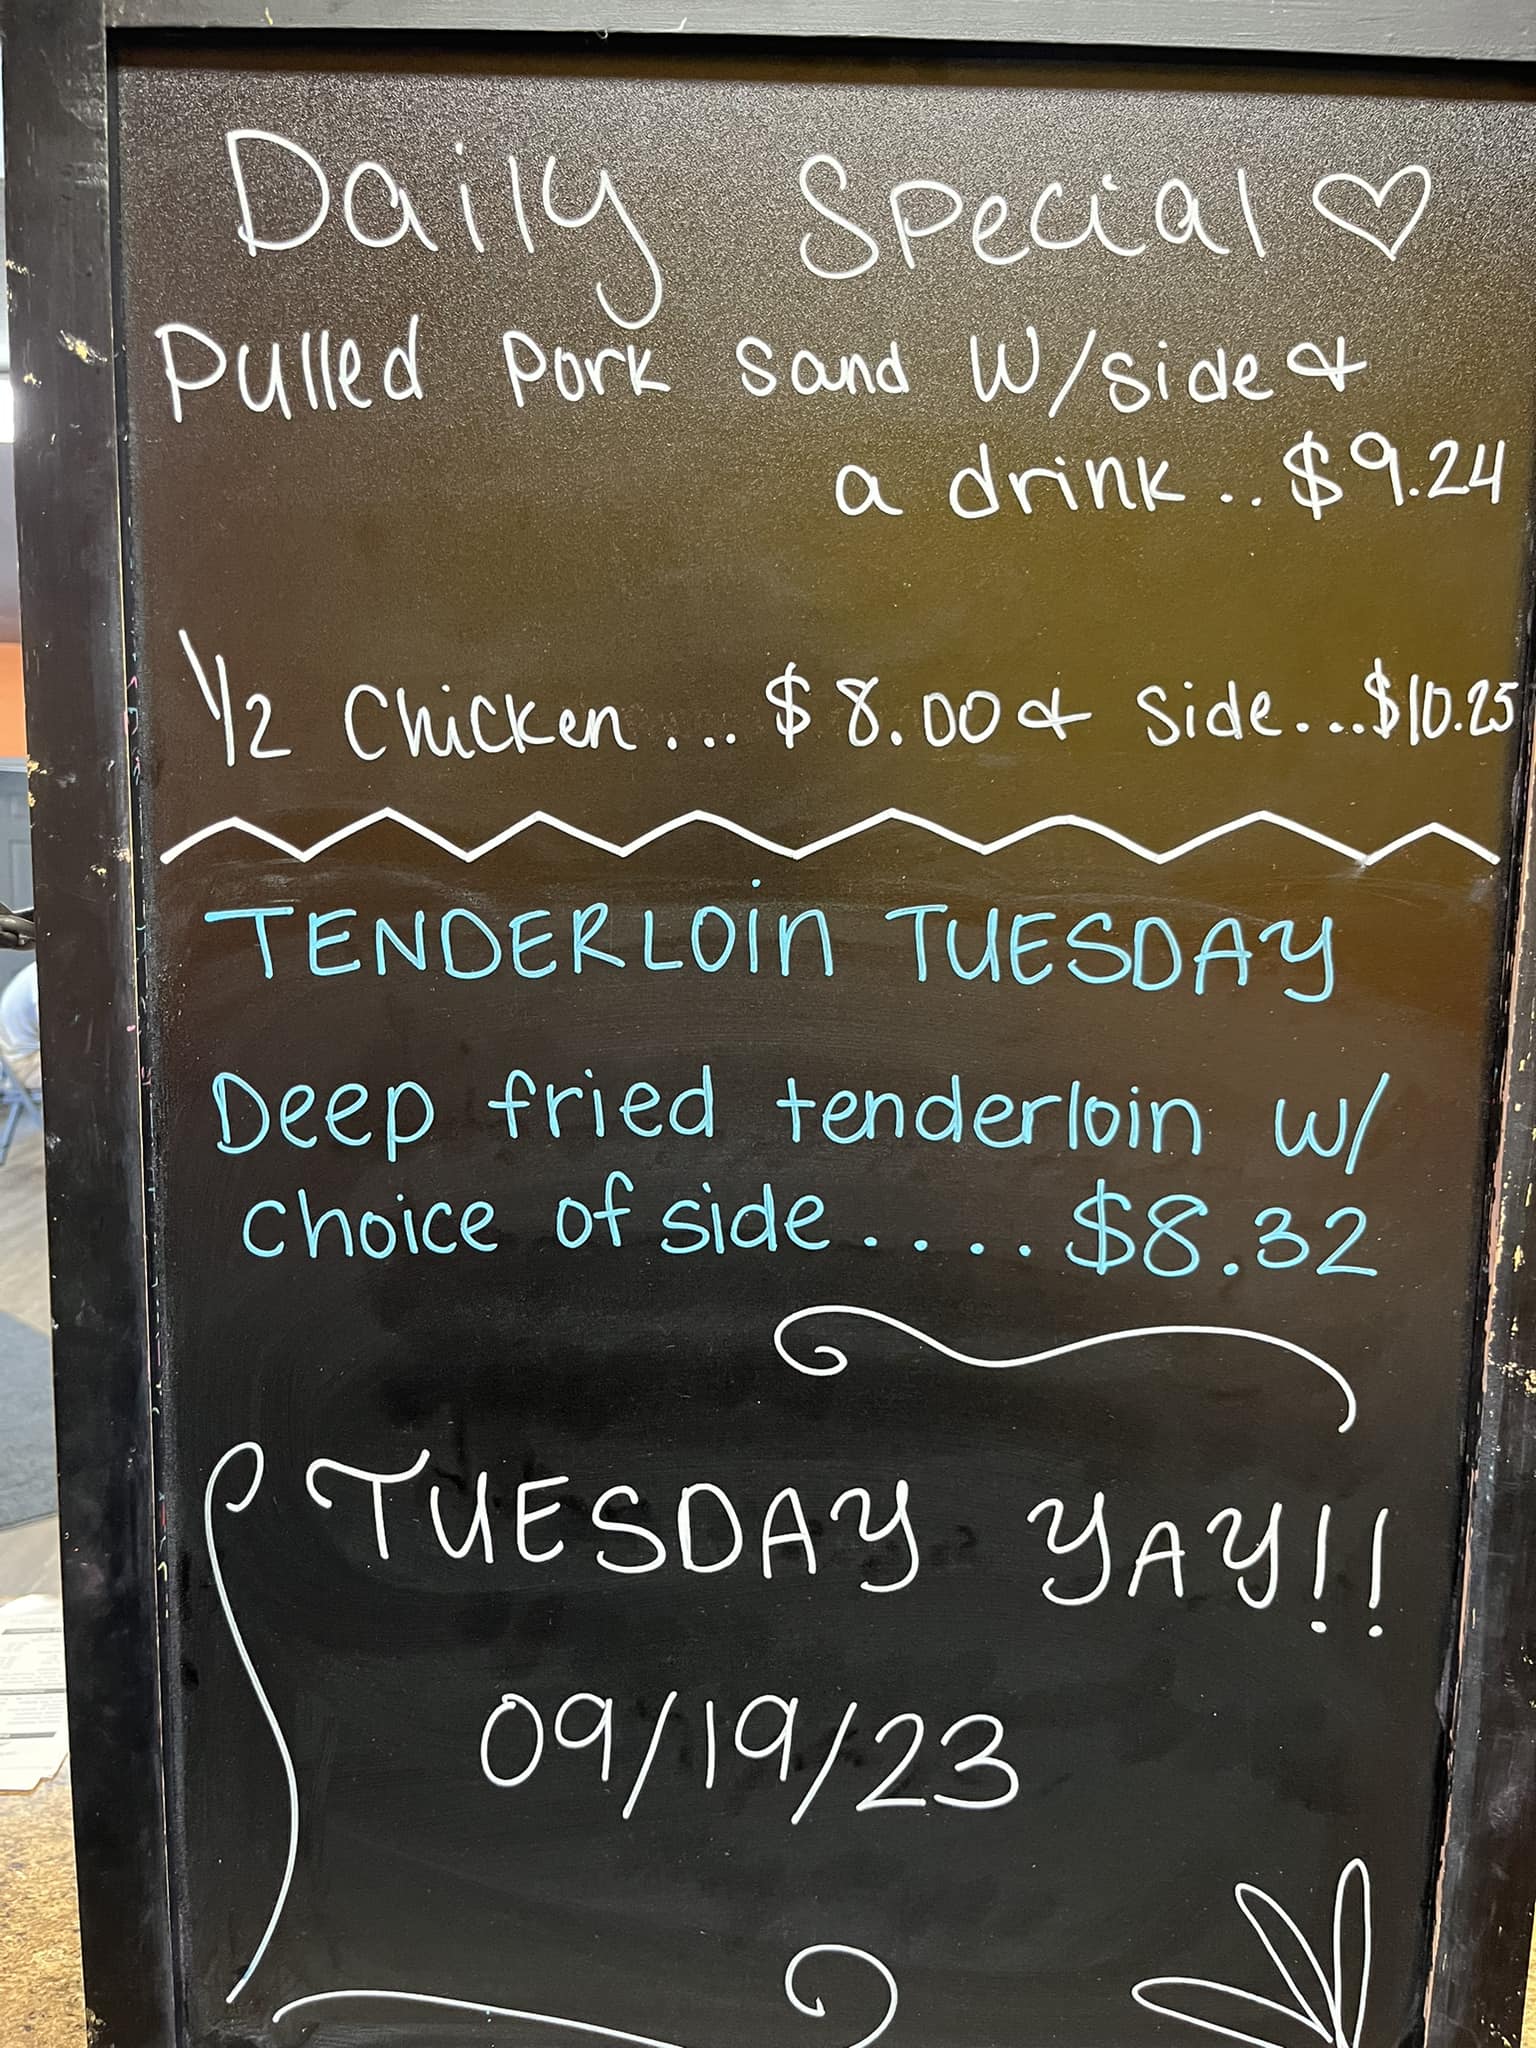 Daily Special ♡
Pulled Pork Sand w/side &
a drink.. $9.24
1/2 Chicken... $8.00 & Side...$10.25
TENDERLOiN TUESDAY
Deep fried tenderloin w/
choice of side..... $8.32
TUESDAY YAY!!
09/19/23